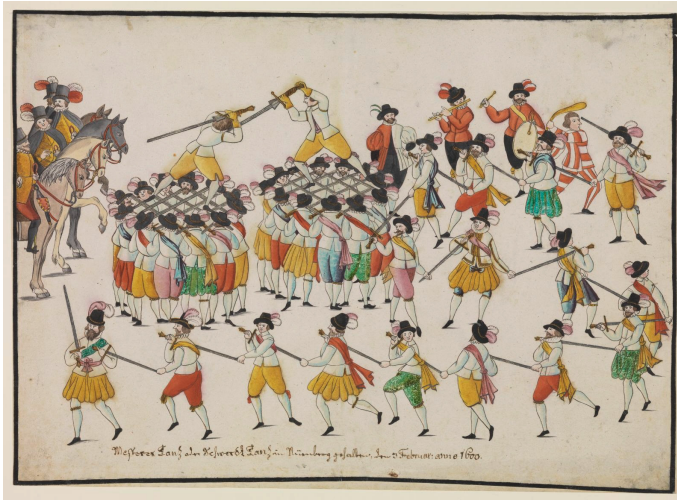 Messerer Tantz oder Schwerdt Tantz in Nürmberg gehalten, den 3 Februar: anno 1600.